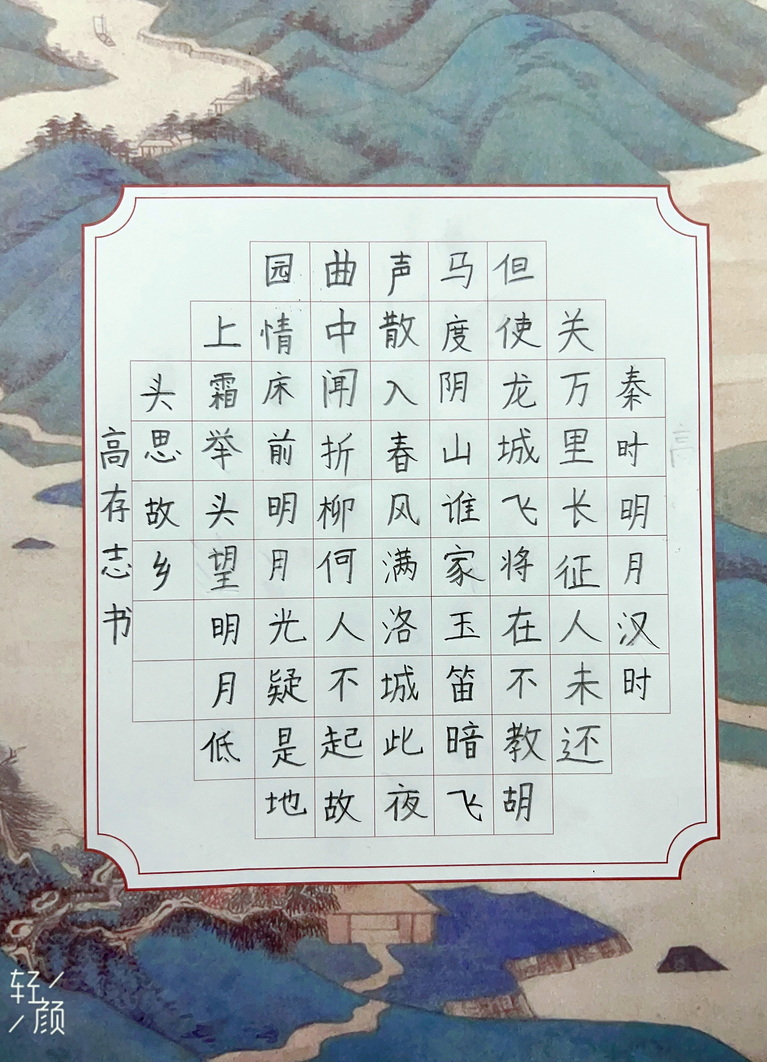 高
秦时明月汉时
关万里长征人未还
但使龙城飞将在不教胡
马度阴山谁家玉笛暗飞
声散入春风满洛城此夜
曲中闻折柳何人不起故
园情床前明月光疑是地
上霜举头望明月低
头思故乡
高存志书
轻颜